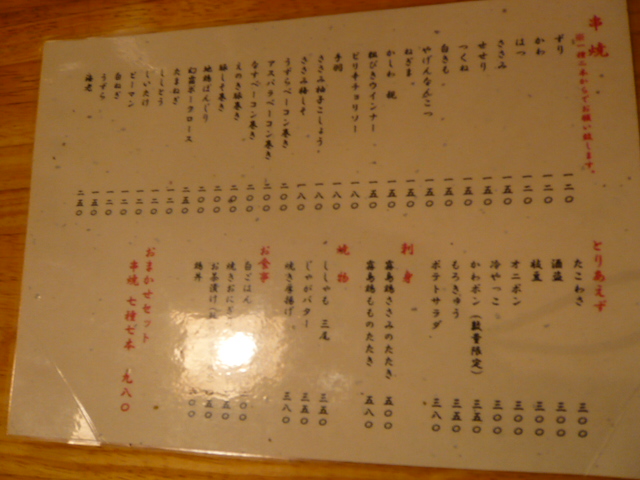 串焼
※一種二本からでお願い致します。
ずり 一二〇
かわ 一二〇
はつ 一二〇
ささみ 一五〇
せせり 一五〇
つくね 一五〇
白きも 一五〇
やげんなんこつ 一五〇
ねぎま 一五〇
かしわ 一五〇
粗びきウインナー 一五〇
ピリ辛チョリソー 一八〇
手羽 一八〇
ささみ柚子こしょう 一八〇
ささみ梅しそ 一八〇
うずらベーコン巻き 二〇〇
アスパラベーコン巻き 二〇〇
なすベーコン巻き 二〇〇
えのき豚巻き 二〇〇
豚しそ巻き 二〇〇
地鶏ぼんじり 二〇〇
幻霜ポークロース 二五〇
たまねぎ 一二〇
ししとう 一二〇
しいたけ 一二〇
ピーマン 一二〇
白ねぎ 一二〇
うずら 一五〇
海老 二五〇
とりあえず
たこわさ 三〇〇
酒盗 三〇〇
枝豆 三〇〇
オニポン 三〇〇
冷やっこ 三〇〇
かわポン(数量限定) 三五〇
もろきゅう 三五〇
ポテトサラダ 三八〇
刺身
霧島鶏ささみのたたき 五〇〇
霧島鶏もものたたき 五八〇
焼物
ししゃも 三尾 三五〇
じゃがバター 三五〇
焼き厚揚げ 三八〇
お食事
白ごはん
焼きおにぎ
お茶漬け
鶏丼
おまかせセット
串焼 七種七本 九八〇